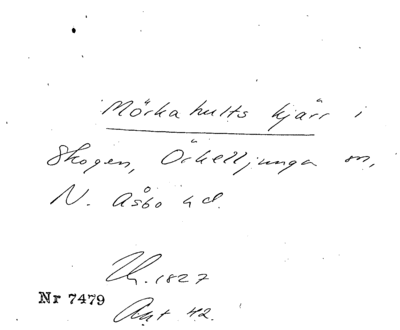 Mörkahults kjärr i
Skogen, Örkelljunga sn,
N. Åsbo hd.
Th. 1827
Nr 7479
Akt 42.